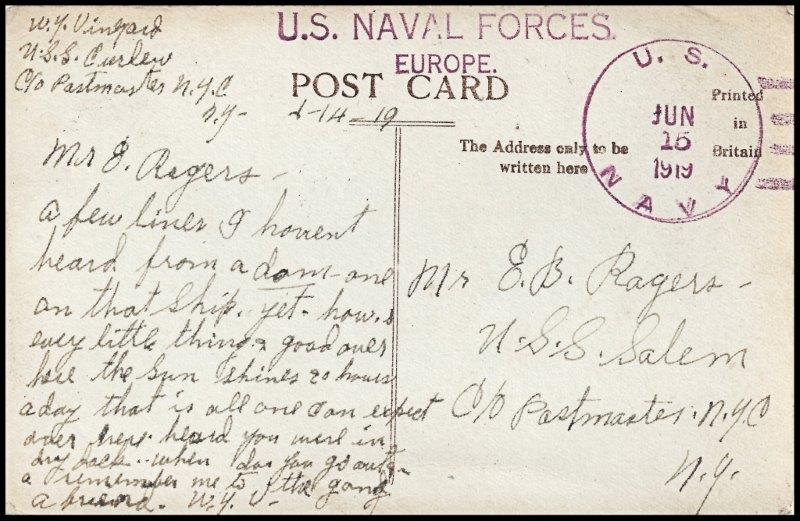 W.Y. Vinyard
U.S.S. Curlew
C/O Postmaster N.Y.C
N.Y-
U.S. NAVAL FORCES.
EUROPE.
POST CARD
6-14-19
U. S.
NAVY
JUN
15
1919
Printed
in
Britain
The Address only to be
written here
Mr E. Rogers-
a few lines I havent
heard from a dam-one
on that ship. yet- how.s
evey little thing good over
here the sun shines 20 hours
a day that is all one can expect
over here. heard you were in
dry dock.. when do you go out-
a remember me to the gang
a friend. W.Y. V-
Mr E.B. Rogers-
U.S.S. Salem
C/O Postmaster. N.Y.C
N.Y.